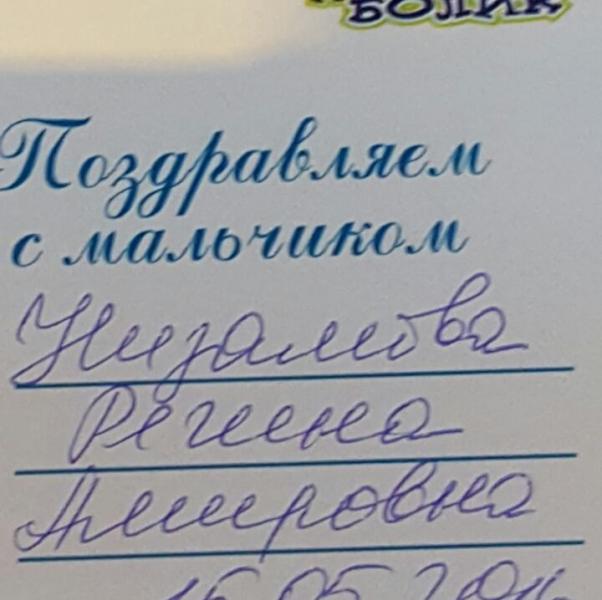 БОЛИК
Поздравляем
с мальчиком
Низамова
Регина
Амировна